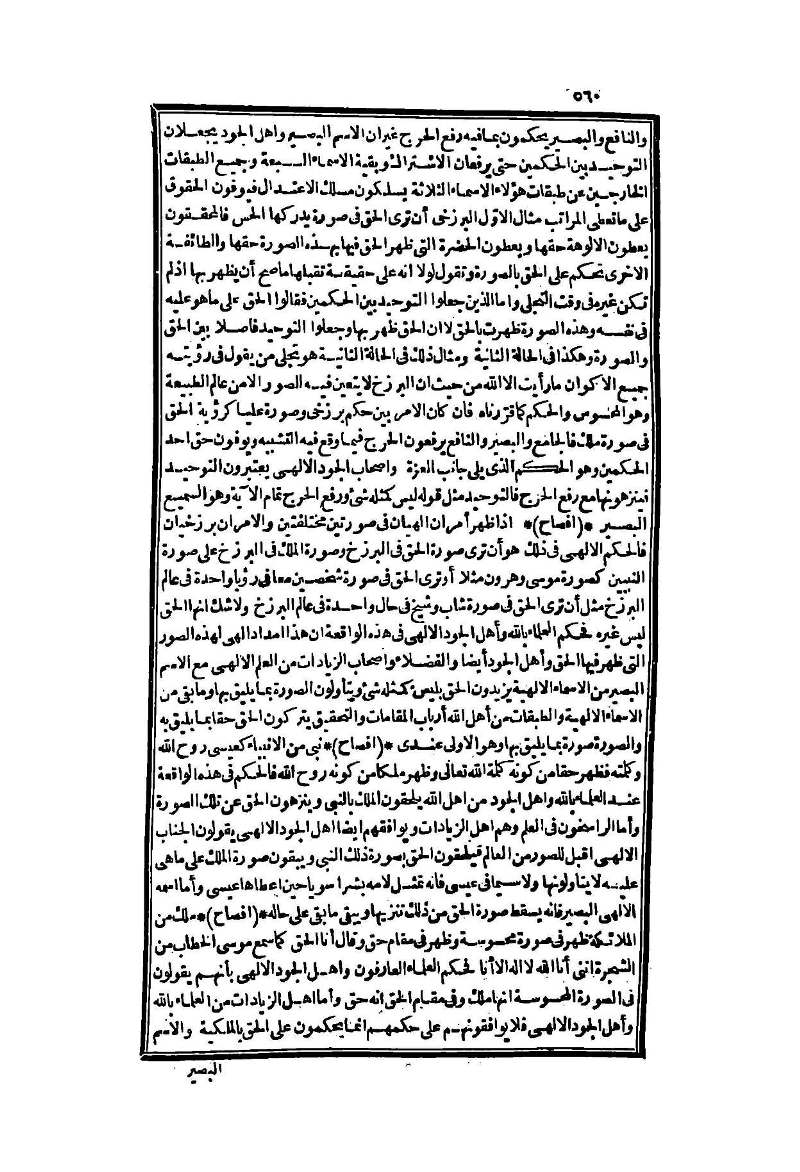 ٥٦٠
والنافع والبصير يحكمون بما فيه رفع الحرج غير ان الاسم البصير واهل الجود يجعلان
التوحيد بين الحكمين حتى يرفعان الاشتراك وبقية الاسماء السبعة وجميع الطبقات
الخارجين عن طبقات هؤلاء الاسماء الثلاثة يسلكون مسلك الاعتدال فيوفون الحقوق
على ما تعطى المراتب مثال الاول البرزخى أن ترى الحق فى صورة يدركها الحس فالمحققون
يعطون الالوهة حقها ويعطون الحضرة التى ظهر الحق فيها بهذه الصورة حقها والطائفة
الاخرى تحكم على الحق بالصورة وتقول لولا انه على حقيقة تقبلها ما صح أن يظهر بها اذ لم
تكن غيره فى وقت التجلى واما الذين جعلوا التوحيد بين الحكمين فقالوا الحق على ما هو عليه
فى نفسه وهذه الصورة ظهرت بالحق لا ان الحق ظهر بها وجعلوا التوحيد فاصلا بين الحق
والصورة وهكذا فى الحالة الثانية ومثال ذلك فى الحالة الثانية هو تجلى من يقول فى رؤيته
جميع الاكوان ما رأيت الا الله من حيث ان البرزخ لا يتعين فيه الصور الا من عالم الطبيعة
وهو المحسوس والحكم كما قررناه فان كان الامر بين حكم برزخى وصورة عليا كرؤية الحق
فى صورة ملك فالجامع والبصير والنافع يرفعون الحرج فيما وقع فيه التشبيه ويوفون حق احد
الحكمين وهو الحكم الذى يلى جانب العزة واصحاب الجود الالهى يعتبرون التوحيد
فينزهونها مع رفع الحرج فالتوحيد مثل قوله ليس كمثله شئ ورفع الحرج تمام الآية وهو السميع
البصير *(افصاح)* اذا ظهر أمران الهيان فى صورتين مختلفتين والامران برزخيان
فالحكم الالهى فى ذلك هو أن ترى صورة الحق فى البرزخ وصورة الملك فى البرزخ على صورة
النبيين كصورة موسى وهرون مثلا أو ترى الحق فى صورة شخصين معا فى رؤيا واحدة فى عالم
البرزخ مثل أن ترى الحق فى صورة شاب وشيخ فى حال واحدة فى عالم البرزخ ولا شك انها الحق
ليس غيره فحكم العلماء بالله وأهل الجود الالهى فى هذه الواقعة ان هذا امداد الهى لهذه الصور
التى ظهر فيها الحق وأهل الجود أيضا والفضلاء واصحاب الزيادات من العلم الالهى مع الاسم
البصير من الاسماء الالهية يزيدون الحق بليس كمثله شئ ويتأولون الصورة بما يليق بها وما بقى من
الاسماء الالهية والطبقات من أهل الله أرباب المقامات والتحقيق يتركون الحق حقا بما يليق به
والصورة صورة بما يليق بها وهو الاولى عندى *(افصاح)* نبى من الانبياء كعيسى روح الله
وكلمته فظهر حقا من كونه كلمة الله تعالى وظهر ملكا من كونه روح الله فالحكم فى هذه الواقعة
عند العلماء بالله واهل الجود من اهل الله يلحقون الملك بالنبى وينزهون الحق عن تلك الصورة
وأما الراسخون فى العلم وهم اهل الزيادات ويوافقهم ايضا اهل الجود الالهى يقولون الجناب
الالهى اقبل للصور من العالم فيلحقون الحق بصورة ذلك النبى ويبقون صورة الملك على ما هى
عليه لا يتأولونها ولا سيما فى عيسى فانه تمثل لامه بشرا سويا حين اعطاها عيسى وأما اسمه
الالهى البصير فانه يسقط صورة الحق من ذلك تنزيها ويبقى ما بقى على حاله *(افصاح)* ملك من
الملائكة ظهر فى صورة محسوسة وظهر فى مقام حق وقال أنا الحق كما سمع موسى الخطاب من
الشجرة اننى أنا الله لا اله الا أنا فحكم العلماء العارفون واهل الجود الالهى بأنهم يقولون
فى الصورة المحسوسة انها ملك وفى مقام الحق انه حق وأما اهل الزيادات من العلماء بالله
وأهل الجود الالهى فلا يوافقونهم على حكمهم انما يحكمون على الحق بالملكية والاسم
البصير